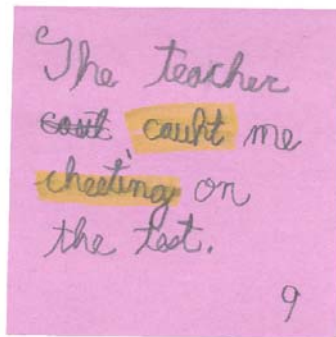 The teacher
cauht me
cheeting on
the test.
9